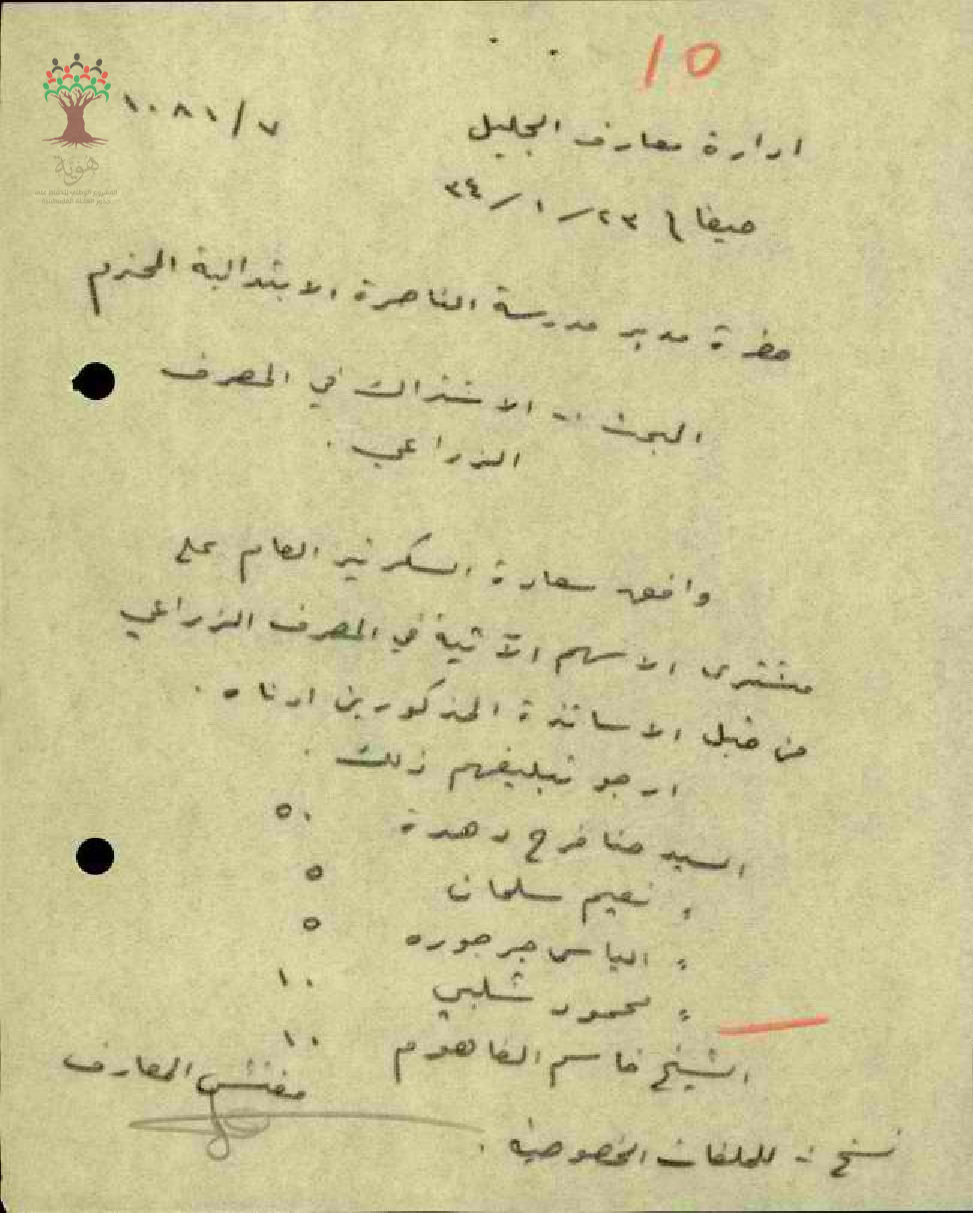 10
ادارة معارف الجليل ٧/١٠٨١
حيفا ٢٣/١/٣٤
حضرة مدير مدرسة الناصرة الابتدائية المحترم
البحث :- الاشتراك في المصرف
الزراعي .
وافق سعادة السكرتير العام على
مشترى الاسهم الآتية في المصرف الزراعي
من قبل الاساتذة المذكورين ادناه .
ارجو تبليغهم ذلك .
السيد حنا فرح دهدة ٥٠
" نعيم سلمان ٥
" الياس جرجوره ٥
" محمود شلبي ١٠
الشيخ قاسم الفاهوم ١٠
مفتش المعارف
نسخ :- للملفات الخصوصية .
هوية